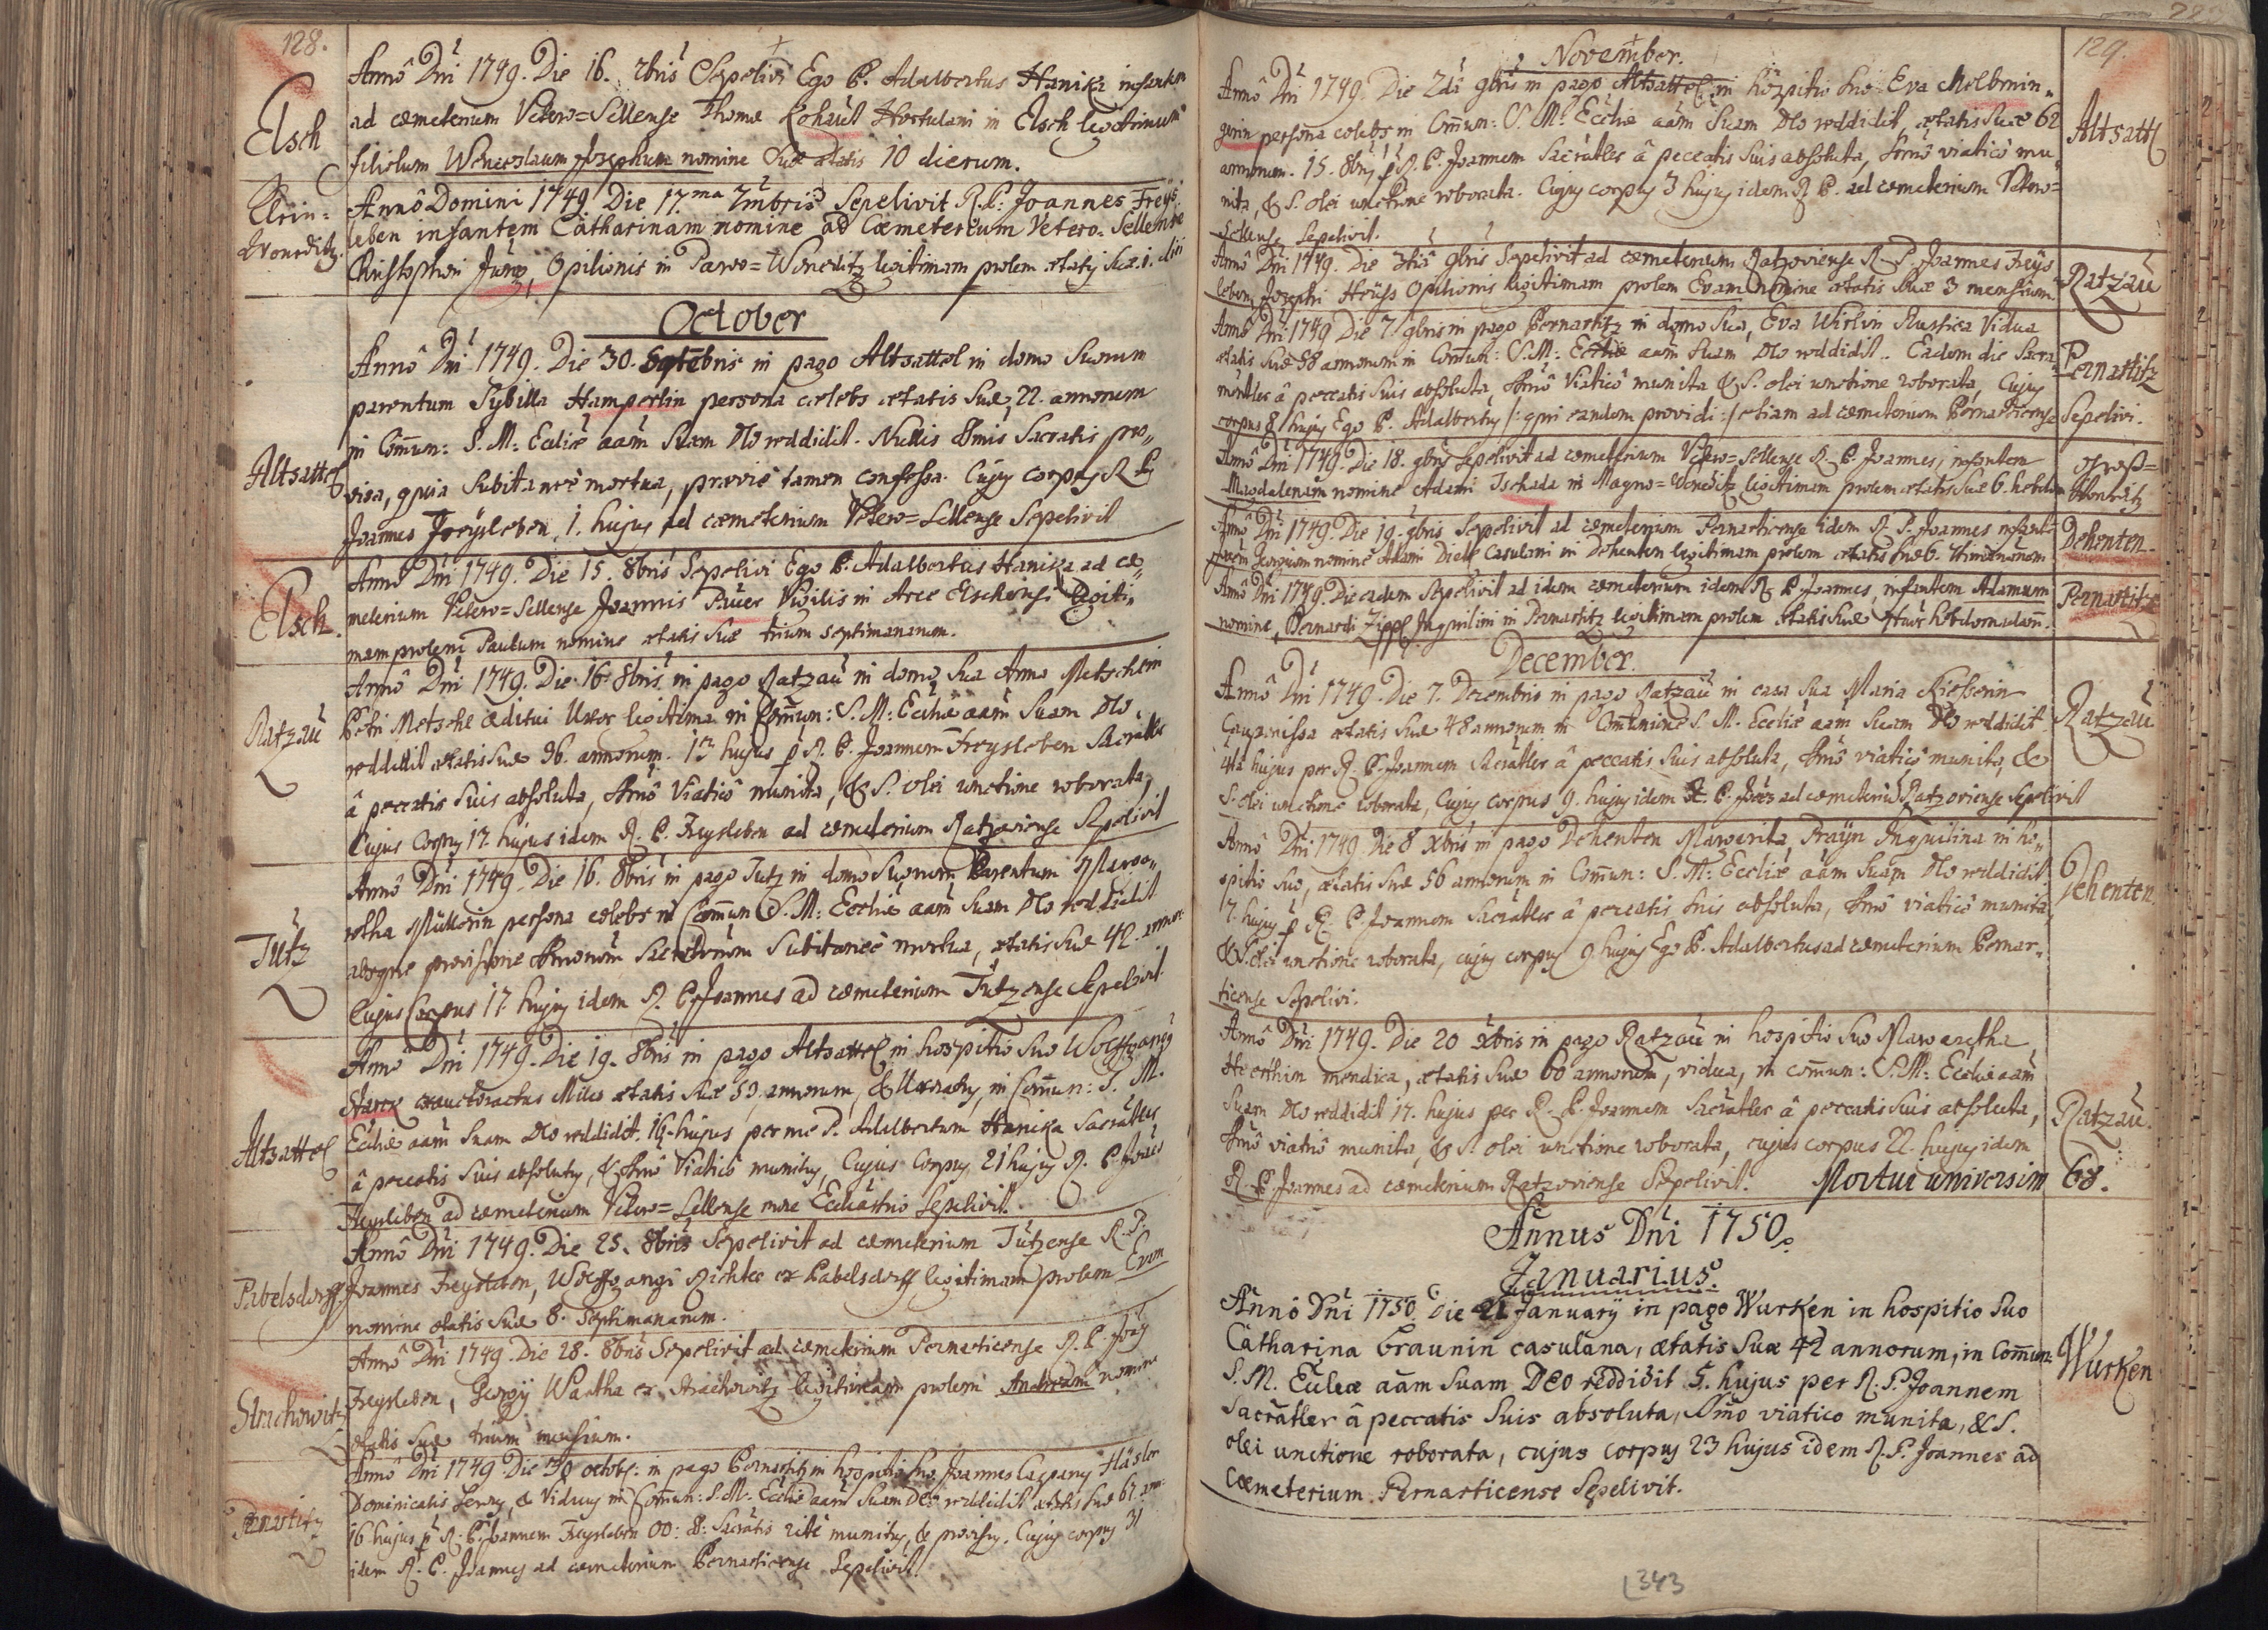 128.
Elsch
Annô Dni 1749. Die 16. 7bris Sepelivi Ego P. Adalbertus Hanika infantem
ad cæmeterium Vetero=Sellense Thomæ Kohaut Hortulani in Elsch legitimum
filiolum Wenceslaum Josephum nomine Suæ ætatis 10 dierum.
Klein=
Woneditz.
Annô Domini 1749 Die 17.ma 7mbris Sepelivit R.P. Joannes Freys=
leben infantem Catharinam nomine ad Cæmetereium Vetero=Sellense
Christophori Jung, Opilionis in Parvo=Woneditz legitimam prolem ætatis suæ 1. diei
October
Altsattel
Annô Dni 1749. Die 30. Septebris in pago Altsattel in domo Suorum
parentum Sybilla Hamperlin persona cælebs ætatis Suæ 22. annorum
in Comun: S. M: Ecclîæ aam Suam DEo reddidit. Nullis SSmis Sacratis pro=
visa, quia Subitaneè mortua, præviè tamen confessa. Cujus corpus R. P.
Joannes Freysleben 1. hujus ad cæmeterium Vetero=Sellense Sepelivit
Elsch
Annô Dni 1749. Die 15. 8bris Sepelivi Ego P. Adalbertus Hanika ad cæ=
meterium Vetero=Sellense Joannis Bauer Vigilis in Arce Elschensi legiti=
mam prolem Paulum nomine ætatis Suæ trium septimanarum.
Ratzau
Annô Dni 1749. Die 16. 8bris in pago Ratzau in domo Sua Anna Metschein
Petri Metsche æditui Uxor legitima in Comun: S. M: Ecclîæ aam Suam DEo
reddidit ætatis Suæ 36. annorum. 13 hujus p R. P. Joannem Freysleben Sacratler
â peccatis Suis absoluta, Smô Viaticô munita, & S. olei unctione roborata,
Cujus Corpus 17. hujus idem R. P. Freysleben ad cæmeterium Ratzoviense Sepelivit
Tutz
Annô Dni 1749. Die 16. 8bris in pago Tutz in domo Suorum Parentum Marga=
retha Müllerin persona cælebs in Comun S. M: Ecclîæ aam Suam DEo reddidit
absque provisione Smorum Sacrtorum Subitaneè mortua, ætatis Suæ 42. annor.
Cujus Corpus 17. hujus idem R. P. Joannes ad cæmeterium Tutzense Sepelivit
Altsattel
Annô Dni 1749. Die 19. 8bris in pago Altsattel in hospitio Suo Wolffgangus
Starck exauctoractus Miles ætatis Suæ 59. annorum, & Uxoratus, in Comun: S. M.
Ecclîæ aam Suam DEo reddidit. 16. hujus per me P. Adalbertum Hanika Sacratler
â peccatis Suis absolutus, & Smô Viaticô munitus, Cujus Corpus 21 hujus R. P. Joes
Freysleben ad cæmeterium Vetero=Sellense more Ecclîastico Sepelivit.
Pabelsdorff
Annô Dni 1749. Die 25. 8bris Sepelivit ad cæmeterium Tutzense R. P.
Joannes Freysleben, Wolffgangi Richter ex Pabelsdorff legitimam prolem Evam
nomine ætatis Suæ 8. Septimanarum.
Strachowitz
Annô Dni 1749. Die 28. 8bris Sepelivit ad cæmeterium Pernarticense R. P. Joes
Freysleben, Georgij Wartha ex Strachowitz legitimam prolem Andream nomine
ætatis Suæ trium mensium.
Pernartitz
Annô Dni 1749 Die 30 octob: in pago Pernartitz in hospitio Suo Joannes Caspary Häsler
Dominicalis Servus, & Viduus in Comun: S. M. Ecclîæ aam Suam DEo reddidit ætatis Suæ 67 ann:
16 hujus p R. P. Joannem Freysleben OO: S: Sacratis ritè munitus, & provisus, Cujus corpus 31
idem R. P. Joannes ad cæmeterium Pernarticense Sepelivit.
129.
November.
Altsattl
Annô Dni 1749. Die 2da 9bris in pago Altsattel in hospitio Suo Eva Molbmin=
gerin persona cælebs in Comun: S. M: Ecclîæ aam Suam DEo reddidit, ætatis Suæ 62
annorum. 15. 8bris p R. P. Joannem Sacratler â peccatis Suis absoluta, Smô viaticô mu=
nita, & S. olei unctione roborata. Cujus corpus 3 hujus idem R. P. ad cæmeterium Vetero=
Sellense Sepelivit.
Ratzau
Annô Dni 1749. Die 3tia 9bris Sepelivit ad cæmeterium Ratzoviense R. P. Joannes Freys
leben, Josephi Heuss Opilionis legitimam prolem Evam nomine ætatis Suæ 3 mensium.
Pernartitz
Annô Dni 1749 Die 7 9bris in pago Pernartitz in domo Sua, Eva Wirlin Rustica Vidua
ætatis Suæ 58 annorum in Comun: S. M: Ecclîæ aam Suam DEo reddidit. Eadem die Sacra=
mentler â peccatis Suis absoluta, Smô Viaticô munita & S. olei unctione roborata, Cujus
corpus 8 hujus Ego P. Adalbertus /: qui eandem providi :/ etiam ad cæmeterium Pernarticense Sepelivi.
Groß=
Wonetitz
Annô Dni 1749. Die 18. 9bris Sepelivit ad cæmeterium Vetero=Sellense R. P. Joannes, infantem
Magdalenam nomine Adami Tschada in Magno=Woneditz legitimam prolem ætatis Suæ 6. hebdom
Dehenten.
Annô Dni 1749. Die 19. 9bris Sepelivit ad cæmeterium Pernarticense idem R. P. Joannes infantem
Georgium nomine Adami Dietl Casulani in Dehenten legitimam prolem ætatis Suæ 6. Septimanarum
Pernartitz
Annô Dni 1749. Die eadem Sepelivit ad idem cæmeterium idem R. P. Joannes, infantem Adamum
nomine, Bernardi Zippl Inquilini in Pernartitz legitimam prolem ætatis Suæ quatuor hebdomadarum.
December.
Ratzau
Annô Dni 1749. Die 7. Decembris in pago Ratzau in casa Sua Maria Rieserin
Cauponissa ætatis Suæ 48 annorum in Comunine S. M. Ecclîæ aam Suam DEo reddidit
4ta hujus per R. P. Joannem Sacratler â peccatis Suis absoluta, Smô viaticô munita, &
S. olei unctione roborata, Cujus corpus 9. hujus idem R. P. Joes ad cæmeterium Ratzoviense Sepelivit
Dehenten.
Annô Dni 1749. Die 8 Xbris in pago Dehenten Margarita Frayin Inquilina in ho=
spitio Suo, ætatis Suæ 56 annorum in Comun: S. M: Ecclîæ aam Suam DEo reddidit
7. hujus p R. P. Joannem Sacratler â peccatis Suis absoluta, Smô viaticô munita,
& S. olei unctione roborata, cujus corpus 9 hujus Ego P. Adalbertus ad cæmeterium Pernar=
ticense Sepelivi.
Ratzau.
Annô Dni 1749. Die 20 Xbris in pago Ratzau in hospitio Suo Margaretha
Heerthin mendica, ætatis Suæ 60 annorum, vidua, in comun: S. M: Ecclîæ aam
Suam DEo reddidit 17. hujus per R. P. Joannem Sacratler â peccatis Suis absoluta,
Smô viaticô munita, & S. olei unctione roborata, cujus corpus 22. hujus idem
R. P. Joannes ad cæmeterium Ratzoviense Sepelivit. Mortui universim 68.
Annus Dni 1750.
Januarius.
Wurken
Annô Dni 1750. Die 21 Januarij in pago Wurken in hospitio Suo
Catharina Braunin casulana, ætatis Suæ 42 annorum, in Comun:
S. M. Eccleæ aam Suam DEO reddidit 5. hujus per R. P. Joannem
Sacratler â peccatis Suis absoluta, Smo viatico munita, & S.
olei unctione roborata, cujus corpus 23 hujus idem R. P. Joannes ad
Cæmeterium Pernarticense Sepelivit.
343